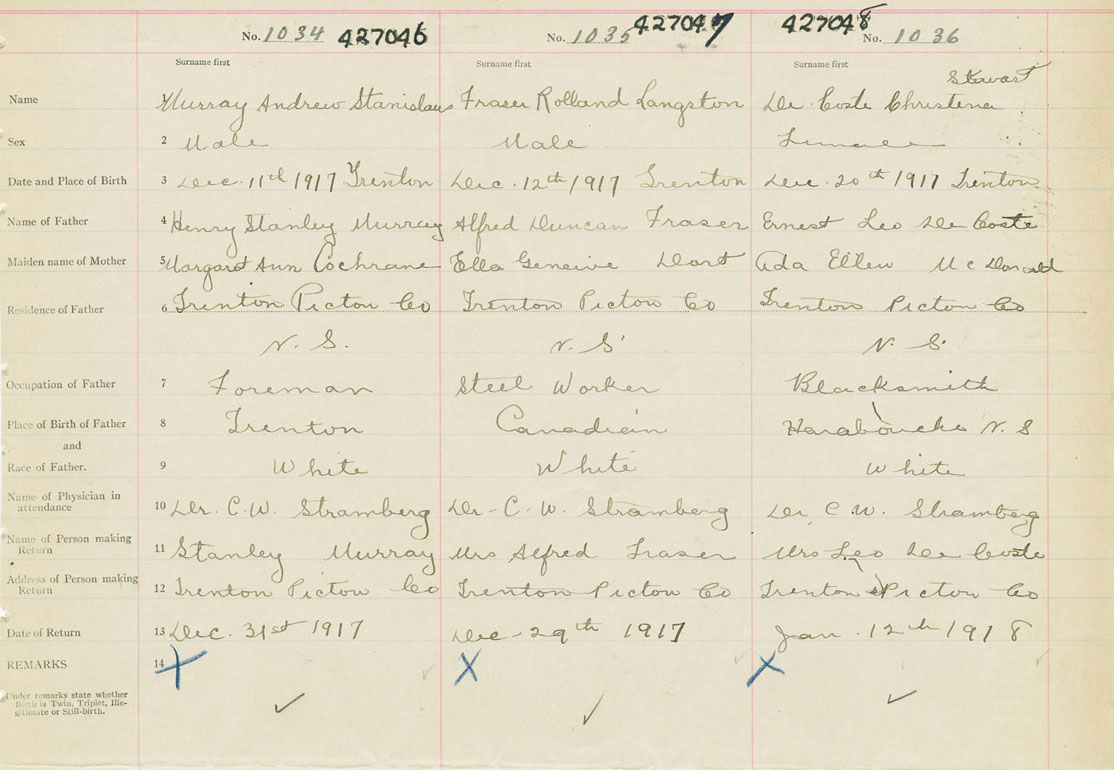 No. 1034 427046 No. 1035 427047 427048 No. 1036
Surname first Surname first Surname first
Stewart
Name 1 Murray Andrew Stanislaus Fraser Rolland Langston De Coste Christena
Sex 2 Male Male Female
Date and Place of Birth 3 Dec. 11th 1917 Trenton Dec. 12th 1917 Trenton Dec. 20th 1917 Trenton
Name of Father 4 Henry Stanley Murray Alfred Duncan Fraser Ernest Leo De Coste
Maiden name of Mother 5 Margaret Ann Cochrane Ella Geneive Dort Ada Ellen McDonald
Residence of Father 6 Trenton Picton Co Trenton Picton Co Trenton Picton Co
N. S. N. S. N. S.
Occupation of Father 7 Foreman Steel Worker Blacksmith
Place of Birth of Father 8 Trenton Canadian Harabouche N. S
and
Race of Father. 9 White White White
Name of Physician in
attendance 10 Dr. C. W. Stramberg Dr - C - W. Stramberg Dr C W. Stramberg
Name of Person making
Return 11 Stanley Murray Mrs Alfred Fraser Mrs Leo De Coste
Address of Person making
Return 12 Trenton Picton Co Trenton Picton Co Trenton Picton Co
Date of Return 13 Dec. 31st 1917 Dec - 29th 1917 Jan. 12th 1918
REMARKS 14 X X X
Under remarks state whether
Birth is Twin, Triplet, Ille-
gitimate or Still-birth.